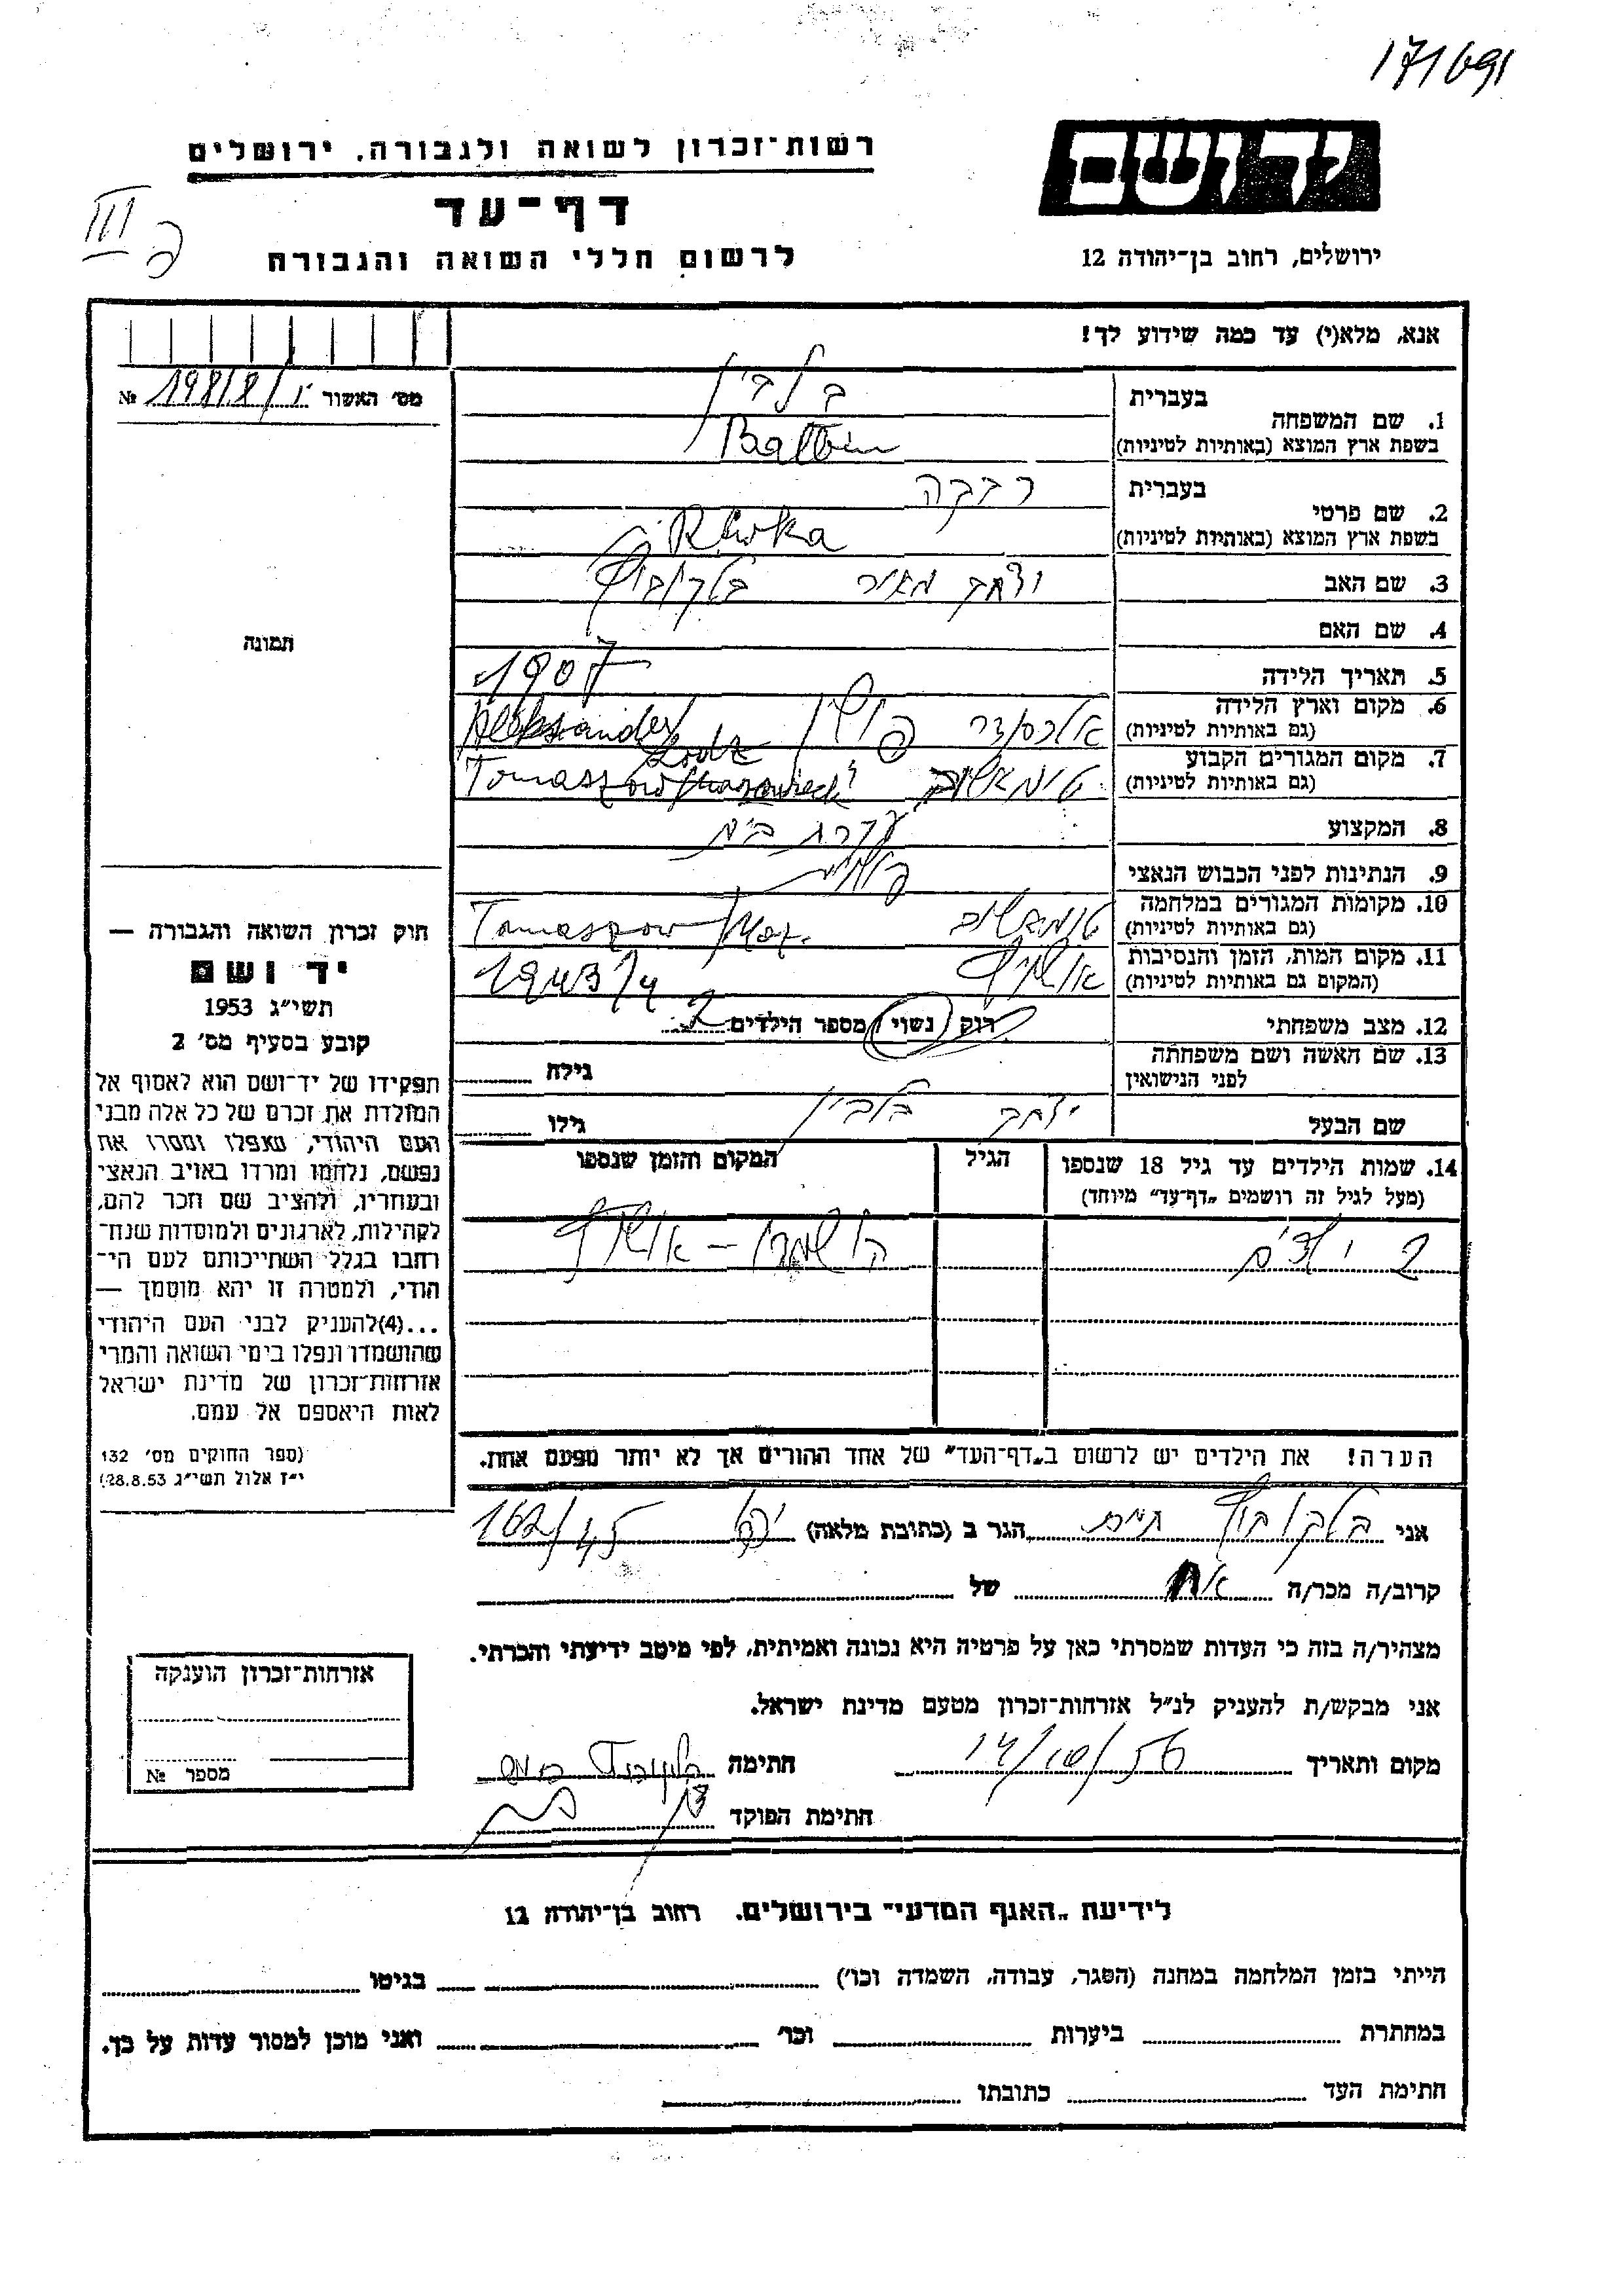 171691
יד ושם
רשות־זכרון לשואה ולגבורה, ירושלים
דף־עד
לרשום חללי השואה והגבורה
ירושלים, רחוב בן־יהודה 12
III
אנא, מלא(י) עד כמה שידוע לך!
מס׳ האשור
№
בעברית
1. שם המשפחה
בלבין
בשפת ארץ המוצא (באותיות לטיניות)
Balbin
בעברית
2. שם פרטי
רבקה
בשפת ארץ המוצא (באותיות לטיניות)
Rivka
3. שם האב
יצחק מאיר
4. שם האם
5. תאריך הלידה
1907
6. מקום וארץ הלידה
(גם באותיות לטיניות)
אלכסנדר פולין
Aleksander
Lodz
7. מקום המגורים הקבוע
(גם באותיות לטיניות)
טומאשוב
Tomaszow Mazowiecki
8. המקצוע
עקרת בית
9. הנתינות לפני הכבוש הנאצי
פולנית
10. מקומות המגורים במלחמה
(גם באותיות לטיניות)
טומאשוב
Tomaszow Maz.
11. מקום המות, הזמן והנסיבות
(המקום גם באותיות לטיניות)
אושויץ
1943/4
12. מצב משפחתי
רוק נשוי מספר הילדים 2
13. שם האשה ושם משפחתה
לפני הנישואין
גילה
שם הבעל
יצחק בלבין
גילו
14. שמות הילדים עד גיל 18 שנספו
(מעל לגיל זה רושמים „דף־עד״ מיוחד)
הגיל
המקום והזמן שנספו
2 ילדים
הושמדו – אושויץ
הערה! את הילדים יש לרשום ב„דף־העד״ של אחד ההורים אך לא יותר מפעם אחת.
תמונה
חוק זכרון השואה והגבורה —
יד ושם
תשי״ג 1953
קובע בסעיף מס׳ 2
תפקידו של יד־ושם הוא לאסוף אל
המולדת את זכרם של כל אלה מבני
העם היהודי, שנפלו ומסרו את
נפשם, נלחמו ומרדו באויב הנאצי
ובעוזריו, ולהציב שם וזכר להם,
לקהילות, לארגונים ולמוסדות שנח־
רבו בגלל השתייכותם לעם הי־
הודי, ולמטרה זו יהא מוסמך —
...(4)להעניק לבני העם היהודי
שהושמדו ונפלו בימי השואה והמרי
אזרחות־זכרון של מדינת ישראל
לאות היאספם אל עמם.
(ספר החוקים מס׳ 132
י״ז אלול תשי״ג 28.8.53)
אני
הגר ב (כתובת מלאה)
יפו 162/45
קרוב/ה מכר/ה
של
מצהיר/ה בזה כי העדות שמסרתי כאן על פרטיה היא נכונה ואמיתית, לפי מיטב ידיעתי והכרתי.
אני מבקש/ת להעניק לנ״ל אזרחות־זכרון מטעם מדינת ישראל.
מקום ותאריך
14/10/56
חתימה
חתימת הפוקד
אזרחות־זכרון הוענקה
מספר №
לידיעת „האגף המדעי״ בירושלים. רחוב בן־יהודה 12
הייתי בזמן המלחמה במחנה (הסגר, עבודה, השמדה וכו׳)
בגיטו
במחתרת
ביערות
וכו׳
ואני מוכן למסור עדות על כך.
חתימת העד
כתובתו